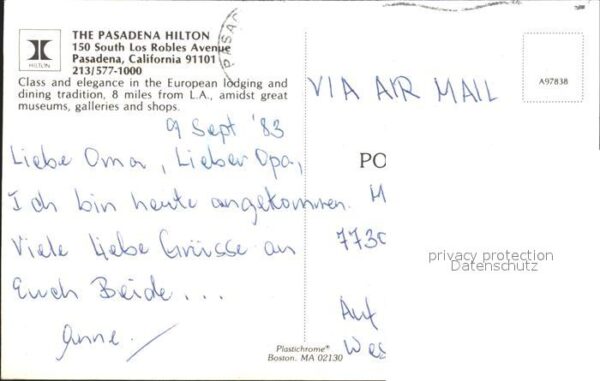 THE PASADENA HILTON
150 South Los Robles Avenue
Pasadena, California 91101
213/577-1000
HILTON
Class and elegance in the European lodging and
dining tradition, 8 miles from L.A., amidst great
museums, galleries and shops.
PASAD
A97838
VIA AIR MAIL
9 Sept '83
Liebe Oma, Lieber Opa,
Ich bin heute angekommen.
Viele liebe Grüsse an
Euch Beide...
Anne.
PO
M
7730
privacy protection
Datenschutz
Auf
Wes
Plastichrome®
Boston, MA 02130